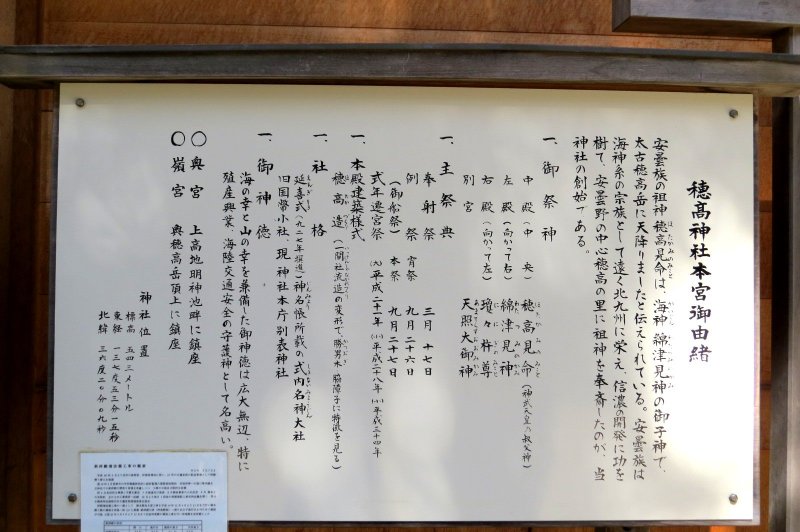 穂高神社本宮御由緒
安曇族の祖神 穂高見命は、海神 綿津見神の御子神で、
太古穂高岳に天降りましたと伝えられている。安曇族は
海神系の宗族として遠く北九州に栄え、信濃の開発に功を
樹て、安曇野の中心穂高の里に祖神を奉斎したのが、当
神社の創始である。
一、御祭神
中殿(中央) 穂高見命(神武天皇の叔父神)
左殿(向かって右) 綿津見神
右殿(向かって左) 瓊々杵尊
別宮 天照大御神
一、主祭典
奉射祭 三月十七日
例祭 宵祭 九月二十六日
(御船祭) 本祭 九月二十七日
式年遷宮祭 (大)平成二十一年 (小)平成二十八年 (小)平成三十四年
一、本殿建築様式
穂高造(一間社流造の変形で勝男木 脇障子に特徴を見る)
一、社格
延喜式(九二七年撰進)神名帳所載の式内名神大社
旧国幣小社、現 神社本庁別表神社
一、御神徳
海の幸と山の幸を兼備した御神徳は広大無辺、特に
殖産興業、海陸交通安全の守護神として名高い。
〇奥宮 上高地明神池畔に鎮座
〇嶺宮 奥穂高岳頂上に鎮座
神社位置
標高 五四三メートル
東経 一三七度五三分一五秒
北緯 三六度二〇分〇九秒